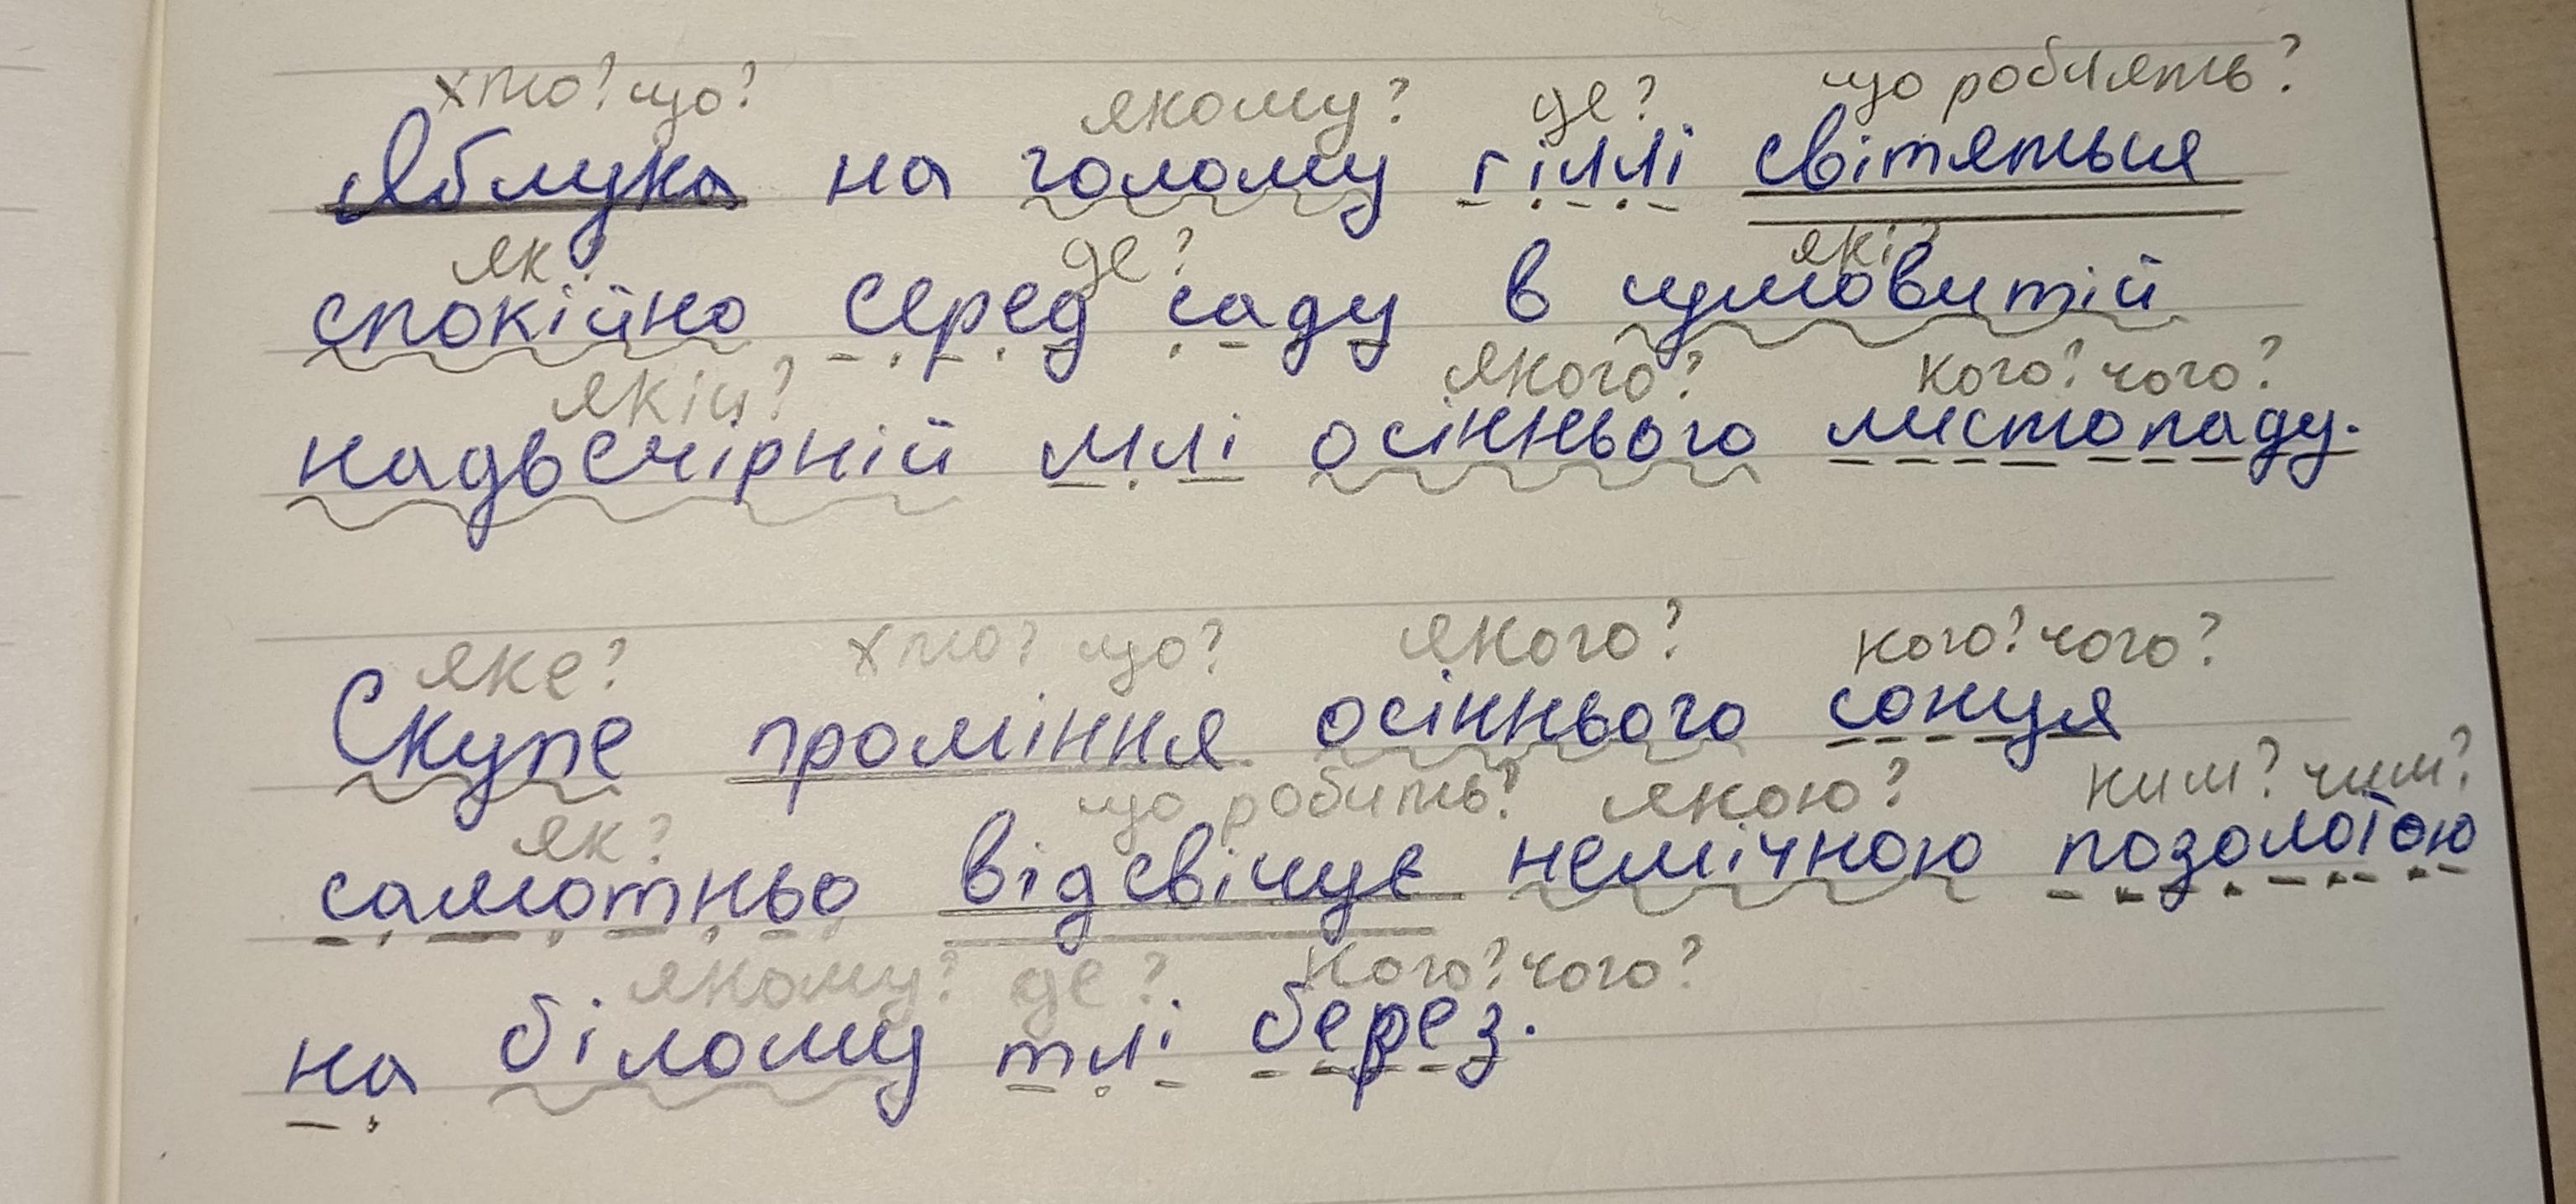 хто? що? якому? де? що роблять?
Яблука на голому гіллі світяться
як? де? які?
спокійно серед саду в щмовитій
якій? якого? кого? чого?
надвечірній млі осіннього листопаду.
яке? хто? що? якого? кого? чого?
Скупе проміння осіннього сонця
як? що робить? якою? ким? чим?
самотньо відсвічує немічною позолотою
якому? де? кого? чого?
на білому тлі берез.